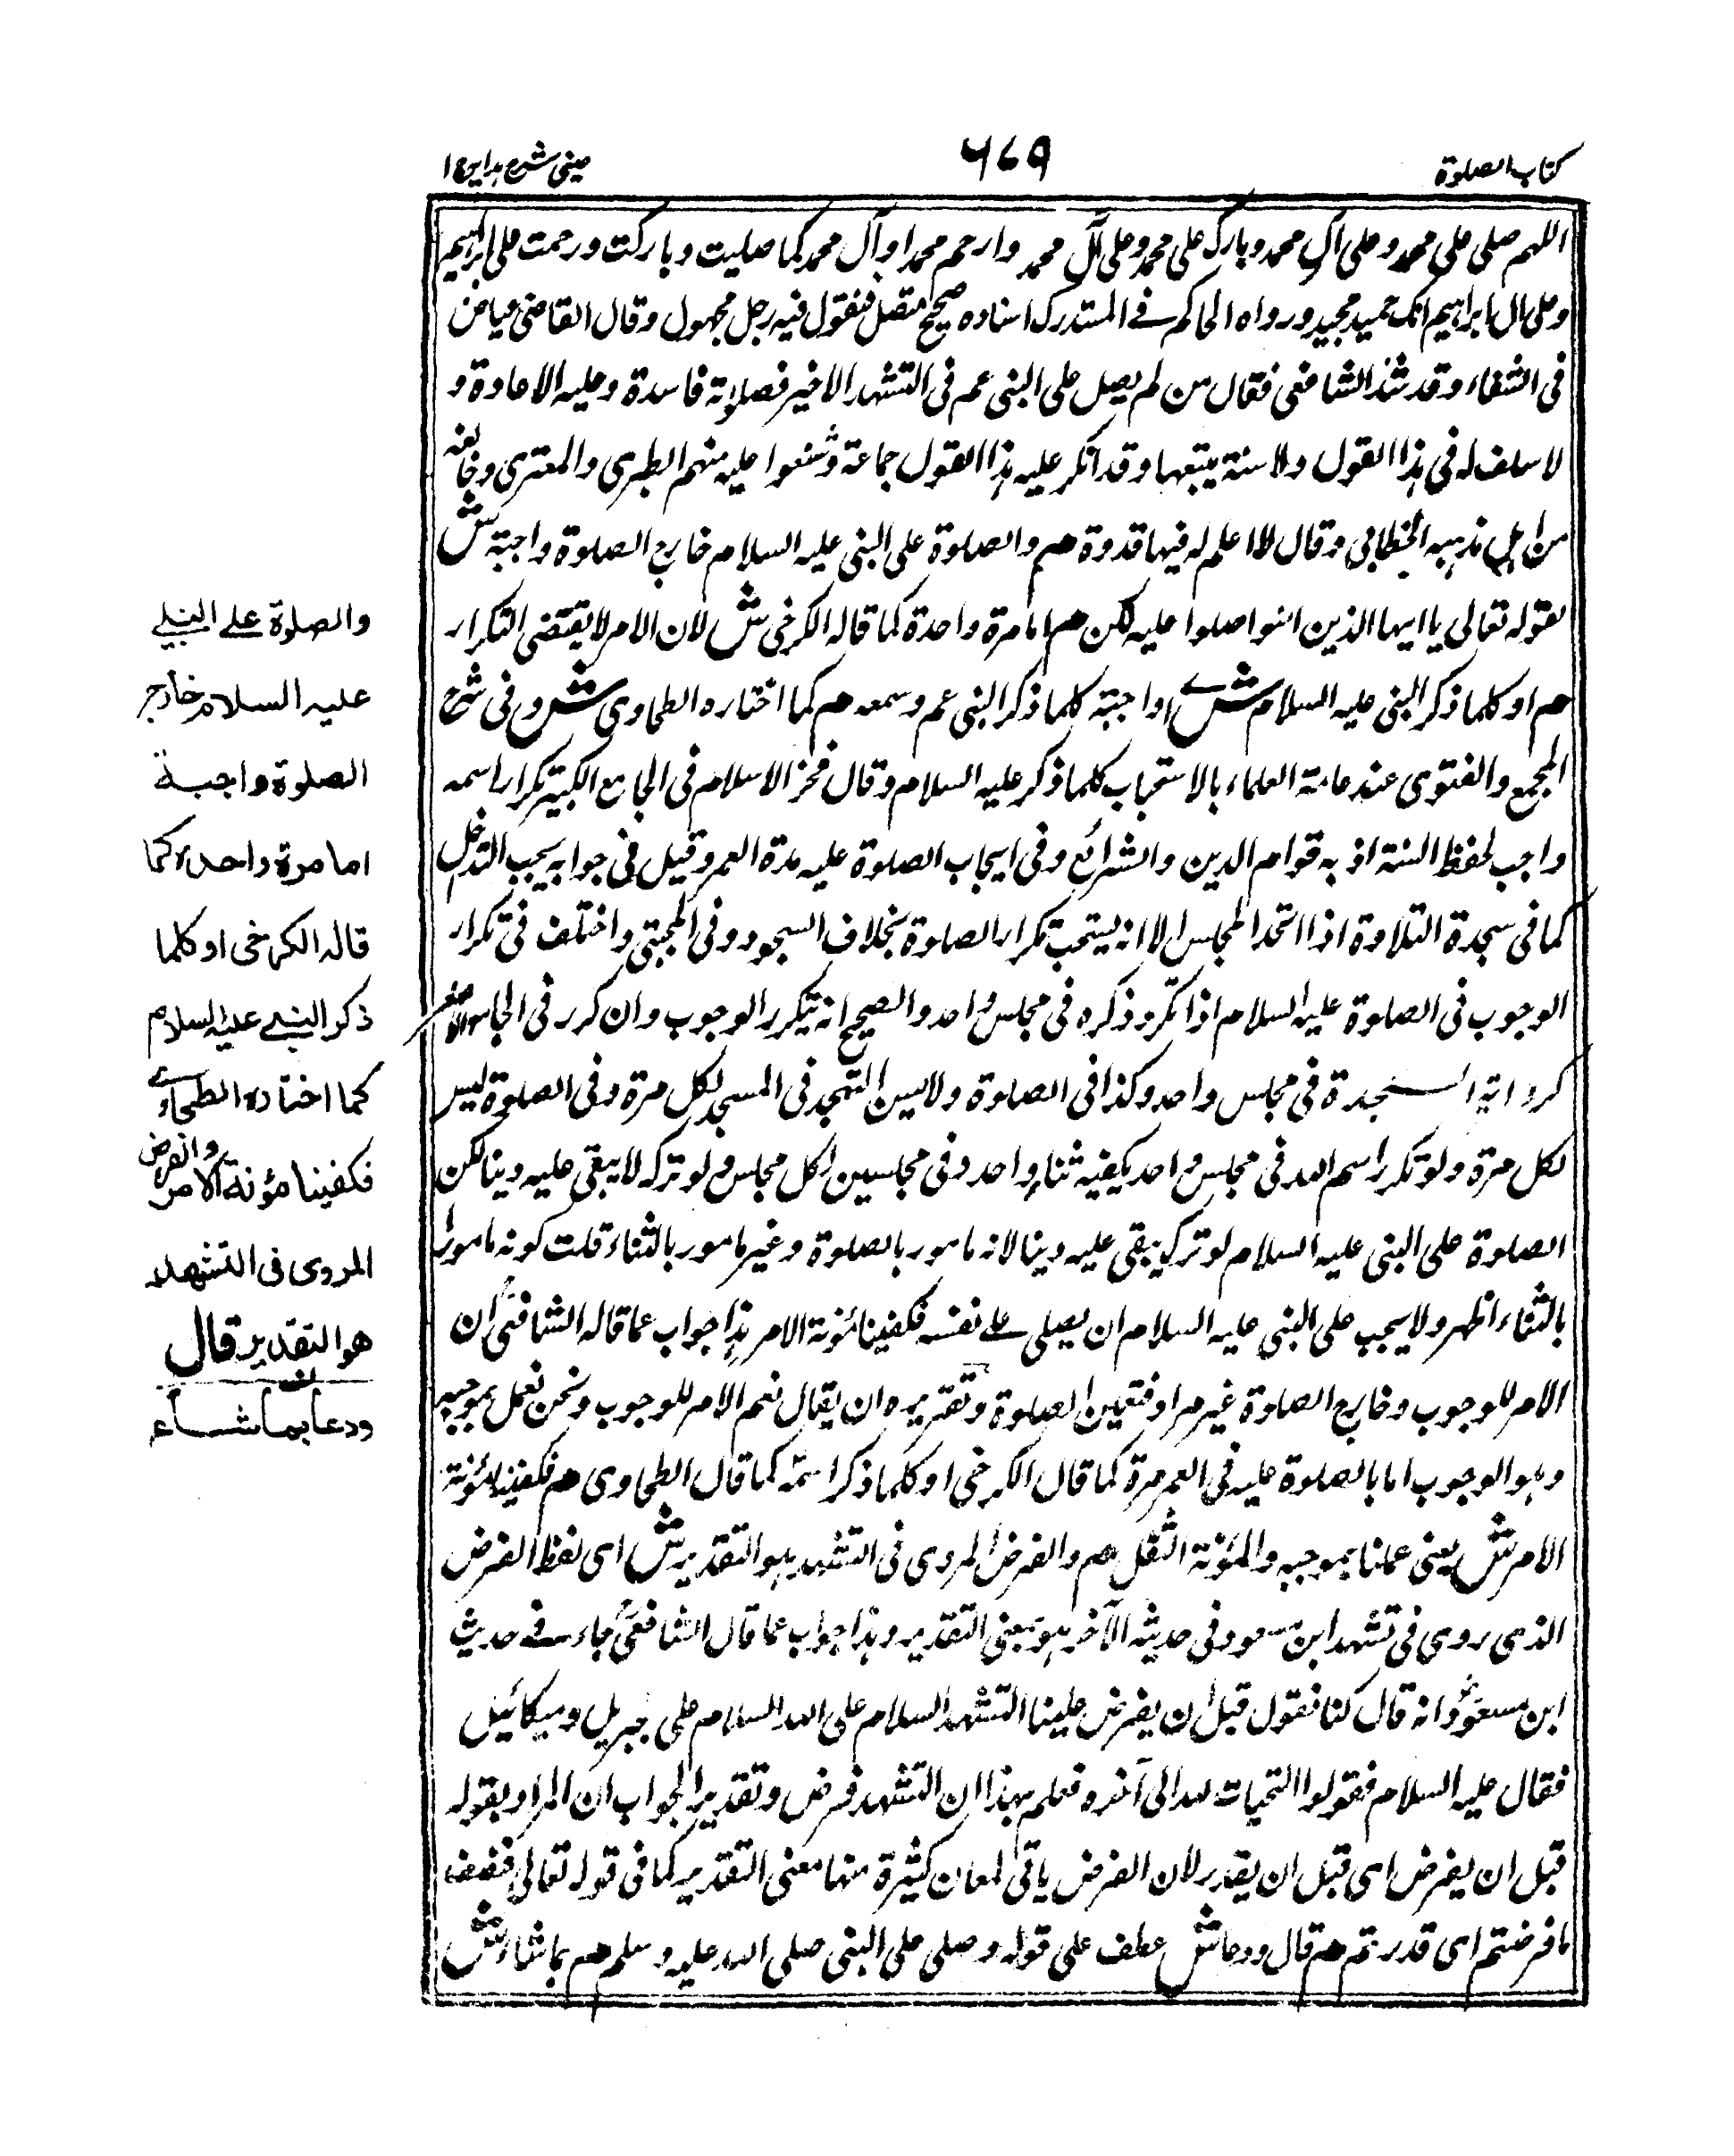 كتاب الصلوة
٦٦٩
عينى شرح هدايہ ج ١
اللهم صلى على محمد وعلى آل محمد وبارك على محمد وعلى آل محمد وارحم محمدا وآل محمد كما صليت وباركت ورحمت على ابراهيم
وعلى ال ابراهيم انك حميد مجيد ورواه الحاكم فے المستدرك اسناده صحيح متصل فنقول فيه رجل مجهول وقال القاضى عياض
فى الشفاء وقد شذ الشافعى فقال من لم يصل على النبى عم فى التشهد الاخير فصلاته فاسدة وعليه الاعادة و
لا سلف له فى هذا القول ولا سنة يتبعها وقد انكر عليه هذا القول جماعة وشنعوا عليه منهم الطبرى والمعترى وخالفه
من اهل مذهبه الخطابى وقال لا اعلم له فيها قدوة هم والصلوة على النبى عليه السلام خارج الصلوة واجبة ش
لقوله تعالى يا ايها الذين امنوا صلوا عليه لكن هم اما مرة واحدة كما قاله الكرخى ش لان الامر لا يقتضى التكرار
هم او كلما ذكر النبى عليه السلام ش اى واجبة كلما ذكر النبى عم وسمعه هم كما اختاره الطحاوى ش وفى شرح
المجمع والفتوى عند عامة العلماء بالاستحباب كلما ذكر عليه السلام وقال فخر الاسلام فى الجامع الكبير تكرار اسمه
واجب لحفظ السنة اذ به قوام الدين والشرائع وفى ايجاب الصلوة عليه مدة العمر وقيل فى جوابه يجب التداخل
كما فى سجدة التلاوة اذا اتحد المجلس الا انه يستحب تكرار الصلوة بخلاف السجود وفى المجتبى واختلف فى تكرار
الوجوب فى الصلوة عليه السلام اذا تكرر ذكره فى مجلس واحد والصحيح انه يتكرر الوجوب وان كرر فى المجلس
السجدة فى مجلس واحد وكذا فى الصلوة ولا يسن التهجد فى المسجد لكل مرة وفى الصلوة ليس
لكل مرة ولو تكرر اسم الله فى مجلس واحد يكفيه ثناء واحد وفى مجلسين لكل مجلس ولو تركه لا يبقى عليه دينا لكن
الصلوة على النبى عليه السلام لو ترك يبقى عليه دينا لانه مامور بالصلوة وغير مامور بالثناء قلت كونه مامورا
بالثناء اظهر ولا يجب على النبى عليه السلام ان يصلى علے نفسه فكفينا مؤنة الامر هذا جواب عما قاله الشافعى ان
الامر للوجوب وخارج الصلوة غير مراد فتعين الصلوة وتقريره ان يقال نعم الامر للوجوب ونحن نعمل بموجبه
وهو الوجوب اما بالصلوة عليه فى العمر مرة كما قال الكرخى او كلما ذكر اسمه كما قال الطحاوى هم فكفينا مؤنة
الامر ش يعنى عملنا بموجبه والمؤنة الثقل هم والفرض المروى فى التشهد هو التقدير ش اى لفظ الفرض
الذى روى فى تشهد ابن مسعود فى حديثه الآخر هو بمعنى التقدير وهذا جواب عما قال الشافعى جاء فے حديث
ابن مسعود انه قال كنا نقول قبل ان يفرض علينا التشهد السلام على الله السلام على جبريل وميكائيل
فقال عليه السلام فقولوا التحيات لله الى آخره فعلم بهذا ان التشهد فرض وتقدير الجواب ان المراد بقوله
قبل ان يفرض اى قبل ان يقدر لان الفرض ياتى لمعان كثيرة منها معنى التقدير كما فى قوله تعالى فنصف
ما فرضتم اى قدرتم هم قال ودعا ش عطف على قوله وصلى على النبى صلى الله عليه وسلم هم بما شاء ش
والصلوة على النبے
عليه السلام خارج
الصلوة واجبة
اما مرة واحدة كما
قاله الكرخى او كلما
ذكر النبے عليه السلام
كما اختاره الطحاوے
فكفينا مؤنة الامر والفرض
المروى فى التشهد
هو التقدير قال
ودعا بما شاء